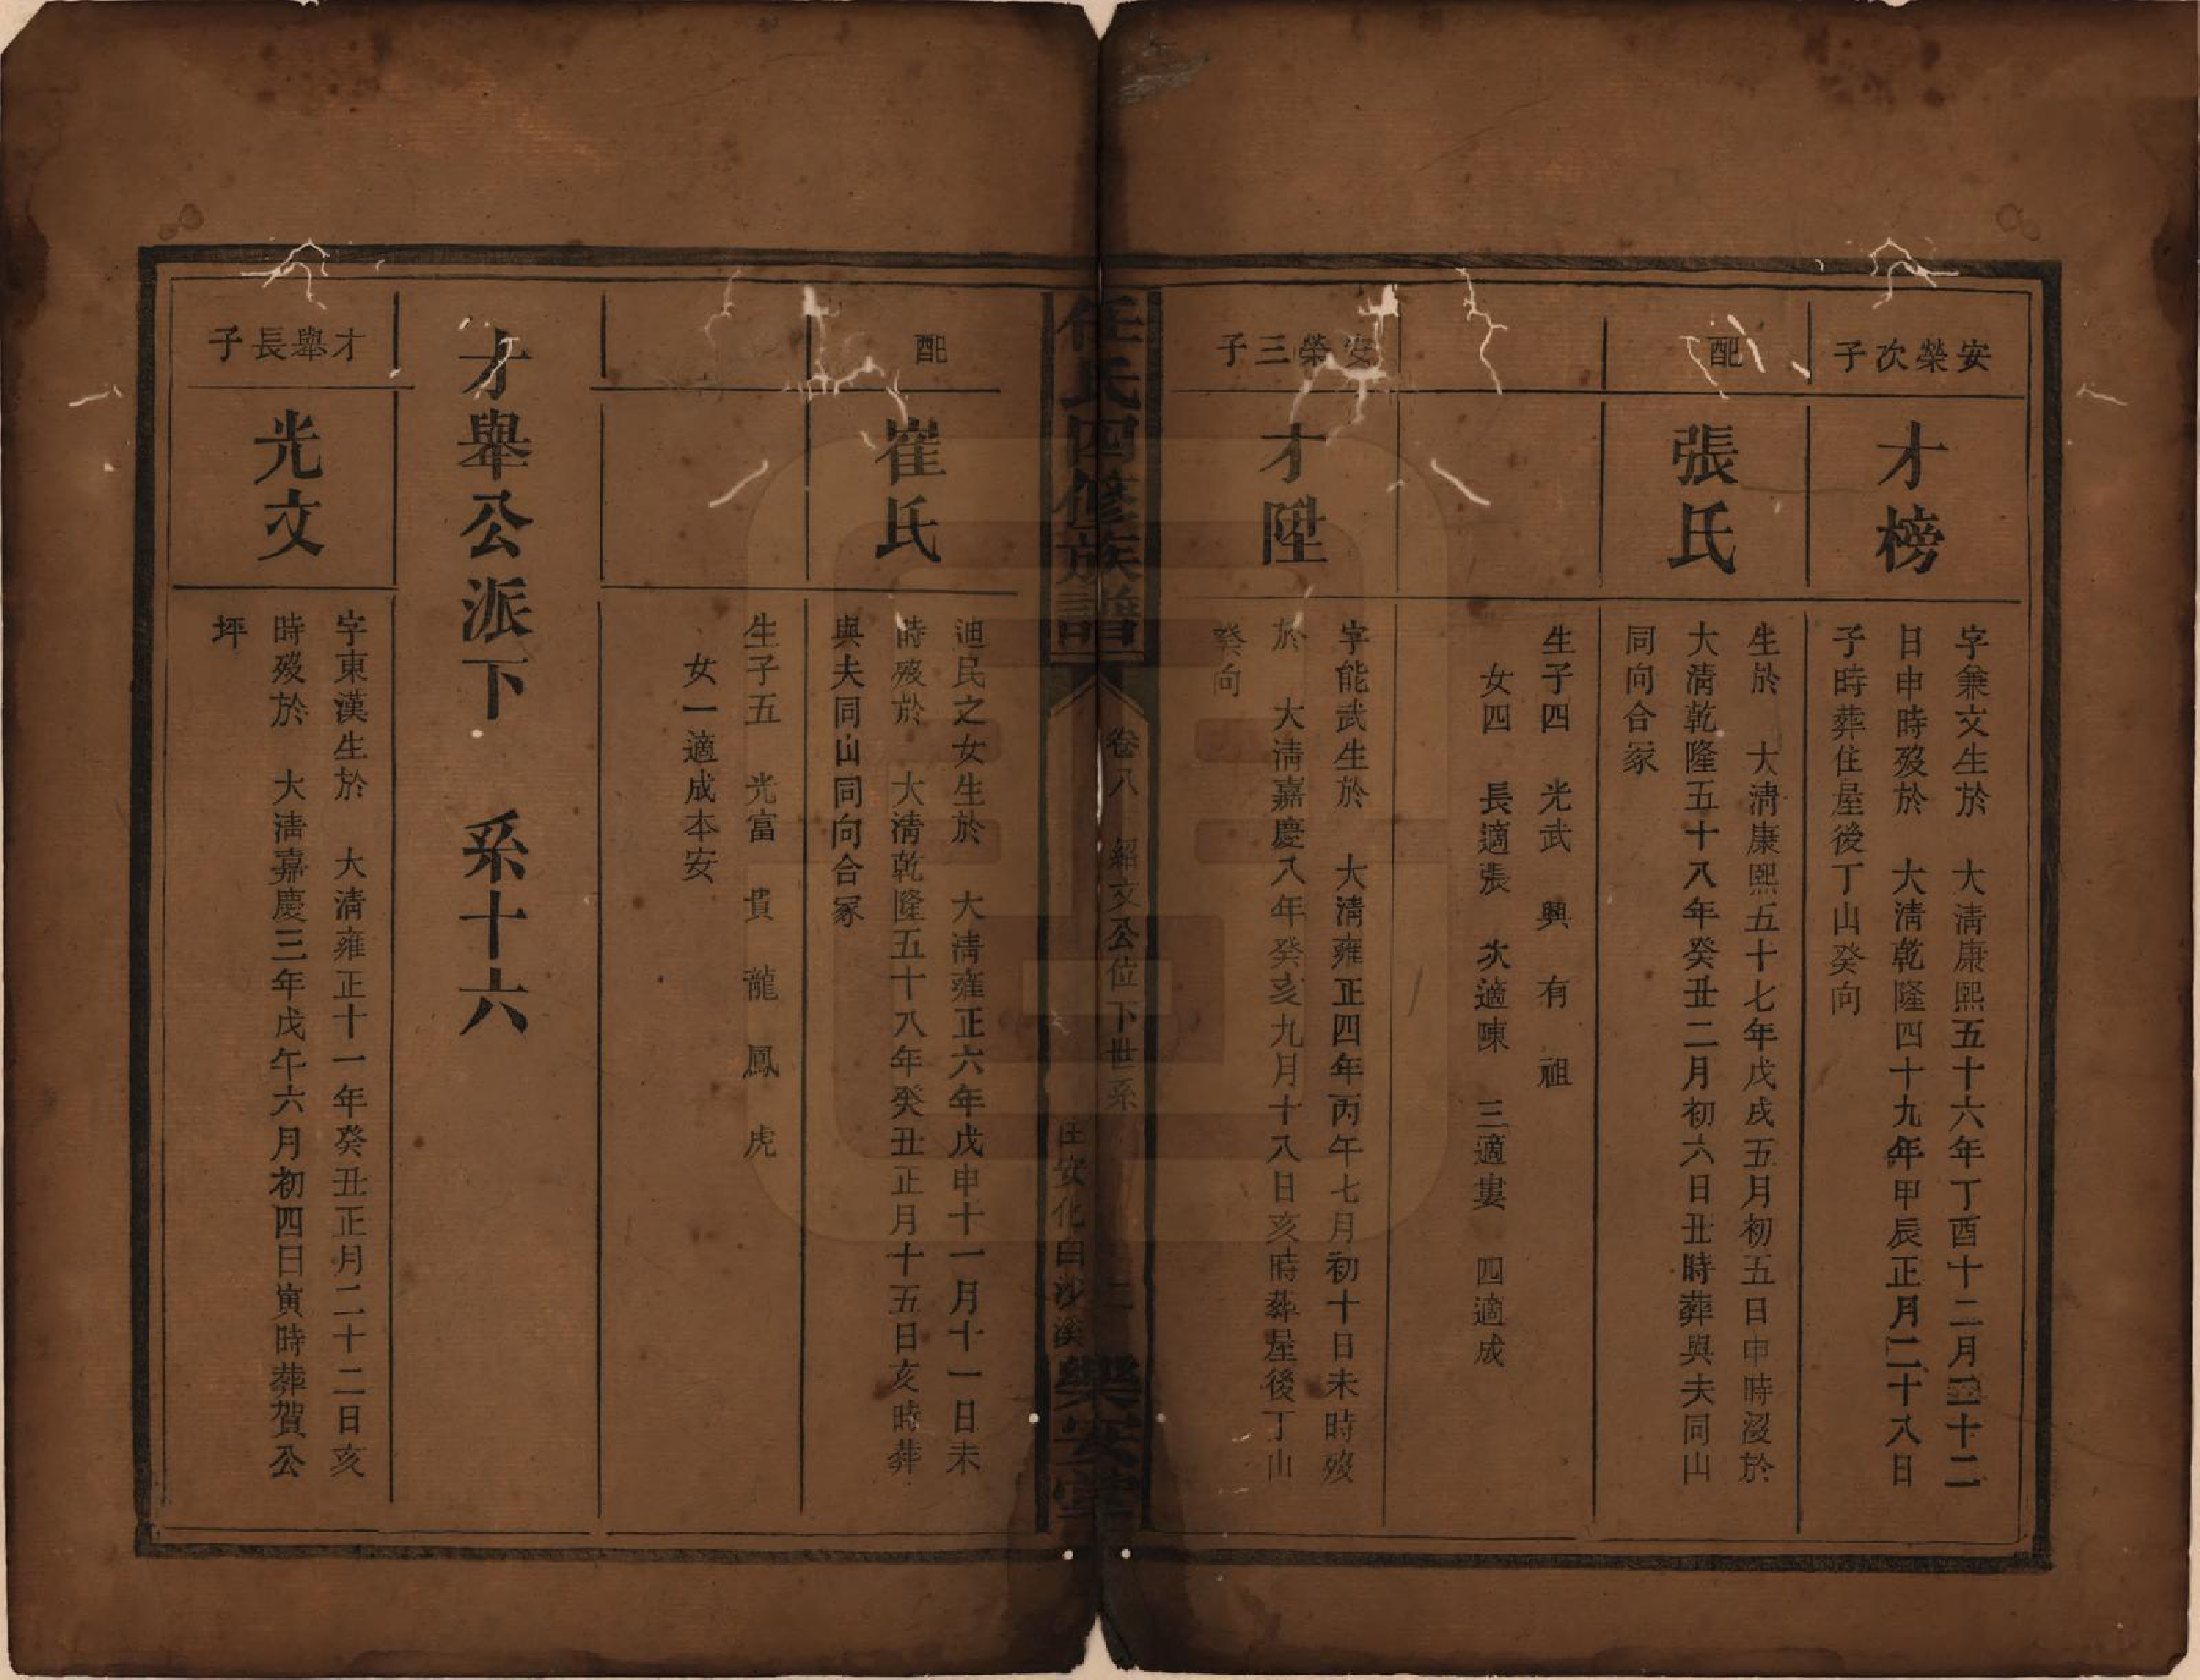 安榮次子
才榜
字兼文生於　大淸康熙五十六年丁酉十二月二十二
日申時歿於　大淸乾隆四十九年甲辰正月二十八日
子時葬住屋後丁山癸向
配
張氏
生於　大淸康熙五十七年戊戌五月初五日申時沒於
大淸乾隆五十八年癸丑二月初六日丑時葬與夫同山
同向合冢
生子四　光武　興　有　祖
女四　長適張　次適陳　三適婁　四適成
安榮三子
才陞
字能武生於　大淸雍正四年丙午七月初十日未時歿
於　大淸嘉慶八年癸亥九月十八日亥時葬屋後丁山
癸向
任氏四修族譜
卷八　紹文公位下世系
住安化白沙溪
二
樂安堂
配
崔氏
迪民之女生於　大淸雍正六年戊申十一月十一日未
時歿於　大淸乾隆五十八年癸丑正月十五日亥時葬
與夫同山同向合冢
生子五　光富　貴　龍　鳳　虎
女一適成本安
才舉公派下　系十六
才舉長子
光文
字東漢生於　大淸雍正十一年癸丑正月二十二日亥
時歿於　大淸嘉慶三年戊午六月初四日寅時葬賀公
坪